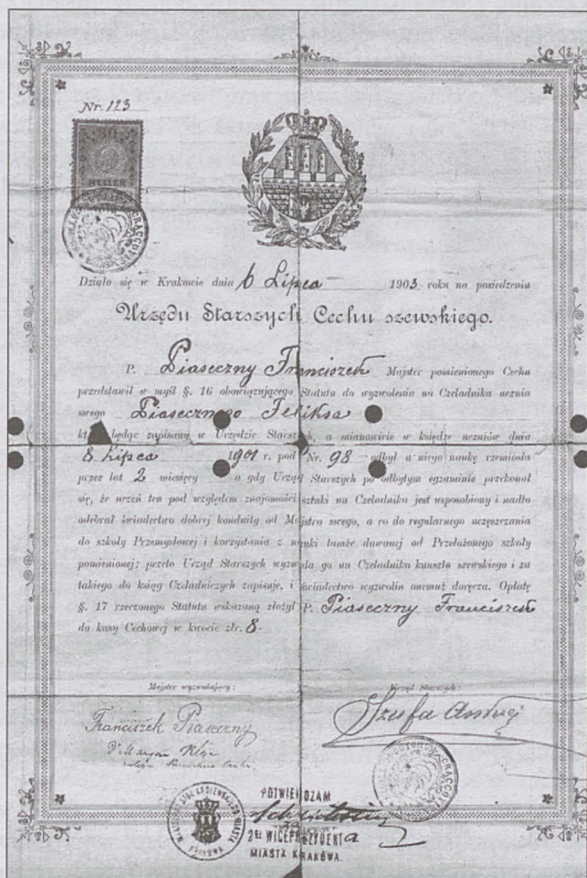 Nr. 123
HELLER
Działo się w Krakowie dnia 6 Lipca 1903 roku na posiedzeniu
Urzędu Starszych Cechu szewskiego.
P. Piaseczny Franciszek Majster pomienionego Cechu
przedstawił w myśl §. 16 obowiązującego Statutu do wyzwolenia na Czeladnika ucznia
swego Piasecznego Feliksa
będąc zapisany w Urzędzie Starszych, a mianowicie w księdze uczniów dnia
8 Lipca 1901 r. pod Nr. 98 odbył u niego naukę rzemiosła
przez lat 2 miesięcy a gdy Urząd Starszych po odbytym egzaminie przekonał
się, że uczeń ten pod względem znajomości sztuki na Czeladnika jest usposobiony i nadto
odebrał świadectwo dobrej konduity od Majstra swego, a co do regularnego uczęszczania
do szkoły Przemysłowej i korzystania z nauki tamże dawanej od Przełożonego szkoły
pomienionej; przeto Urząd Starszych wyzwala go na Czeladnika kunsztu szewskiego i za
takiego do ksiąg Czeladniczych zapisuje, i świadectwo wyzwolin onemuż doręcza. Opłatę
§. 17 rzeczonego Statutu wskazaną złożył P. Piaseczny Franciszek
do kasy Cechowej w kwocie złr. 8.
Majster wyzwalający:
Urząd Starszych:
Franciszek Piaseczny
Szufa Andrzej
POTWIERDZAM
2gi WICEPREZYDENT
MIASTA KRAKOWA.